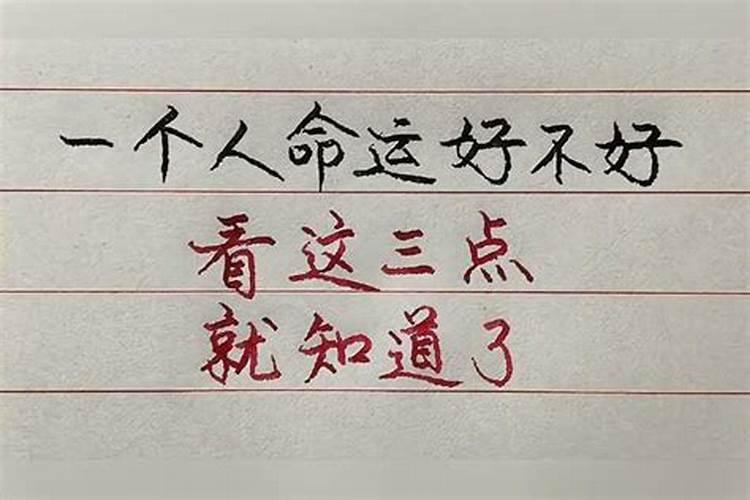 一个人命运好不好
看这三点
就知道了